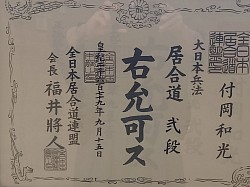 付岡和光
大日本兵法
居合道 弐段
右允可ス
皇紀二千六百七十九年九月十五日
全日本居合道連盟
会長 福井將人